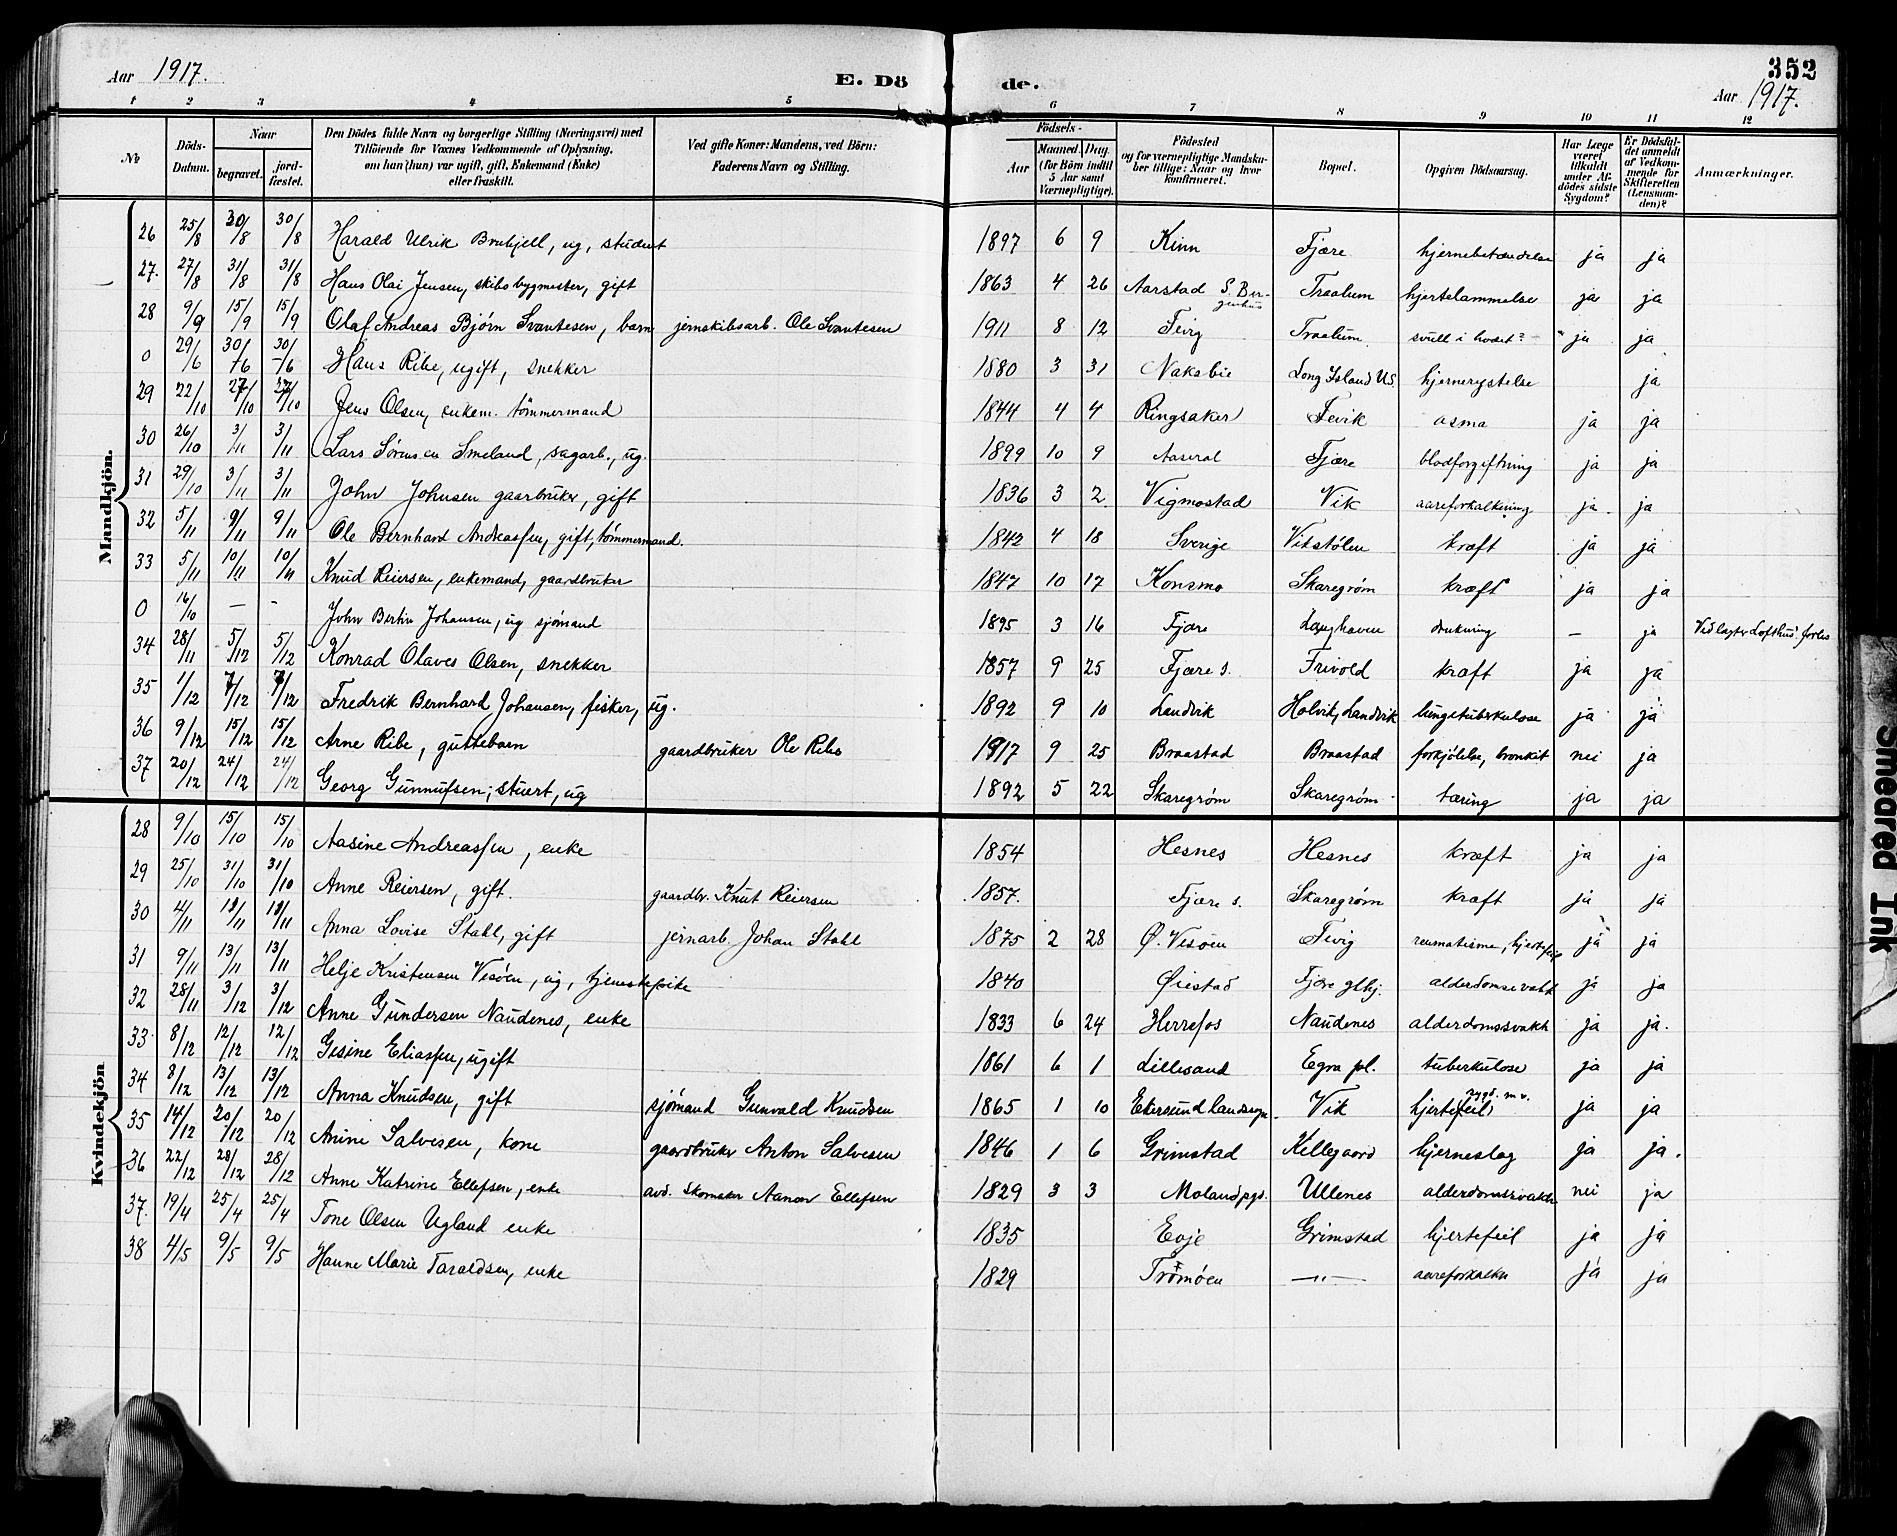 Aar 1917.
E. Dö de.
352
Aar 1917.
1 2 3 4 5 6 7 8 9 10 11 12
No
Döds-Datum.
Naar begravet. jordfæstet.
Den Dödes fulde Navn og borgerlige Stilling (Næringsvei) med Tilföiende for Voxnes Vedkommende af Oplysning, om han (hun) var ugift, gift, Enkemand (Enke) eller fraskilt.
Ved gifte Koner: Mandens, ved Börn: Faderens Navn og Stilling.
Födsels- Aar Maaned. Dag. (for Börn indtil 5 Aar samt Værnepligtige).
Födested og for værnepligtige Mandskaber tillige: Naar og hvor konfirmeret.
Bopæl.
Opgiven Dödsaarsag.
Har Læge været tilkaldt under Afdödes sidste Sygdom?
Er Dödsfaldet anmeldt af Vedkommende for Skifteretten (Lensmanden)?
Anmærkninger.
Mandkjön.
26 25/8 30/8 30/8 Harald Ulrik Bruhjell, ug, student 1897 6 9 Kinn Fjære hjernebetændelse ja ja
27. 27/8 31/8 31/8 Hans Olai Jensen, skibsbygmester, gift 1863 4 26 Aarstad S. Bergenhus Traalum hjertelammelse ja ja
28 9/9 15/9 15/9 Olaf Andreas Bjørn Svantesen, barn jernskibsarb. Ole Svantesen 1911 8 12 Fevig Traalum svull i hodet? ja ja
0 29/6 30/6 30/6 Hans Ribe, ugift, snekker 1880 3 31 Nakabie Long Island US. hjernerystelse ja
29 22/10 27/10 27/10 Jens Olsen, enkem. tömmermand 1844 4 4 Ringsaker Fevik asma ja ja
30 26/10 3/11 3/11 Lars Sørensen Smeland, sagarb., ug. 1899 10 9 Aaseral Fjære blodforgiftning ja ja
31 29/10 3/11 3/11 John Johnsen gaarbruker, gift 1836 3 2 Vigmostad Vik aareforkalkning ja. ja
32 5/11 9/11 9/11 Ole Bernhard Andreassen, gift, tömmermand. 1842 4 18 Sverige Vikstølen kræft ja ja
33 5/11 10/11 10/11 Knud Reiersen, enkemand, gaardbruker 1847 10 17 Konsmo Skaregrøm kræft ja ja
0 16/10 — - John Bertin Johansen, ug sjømand 1895 3 16 Fjære druknig — ja
34 28/11 5/12 5/12 Konrad Olaves Olsen, snekker 1857 9 25 Fjære s. Frivold kræft ja ja
35 1/12 7/12 7/12 Fredrik Bernhard Johansen, fisker, ug. 1892 9 10 Landvik Holvik, Landvik lungetuberkulose ja ja
36 9/12 15/12 15/12 Arne Ribe, guttebarn gaardbruker Ole Ribe 1917 9 25 Braastad Braastad forkjölelse, bronkit nei ja
37 20/12 24/12 24/12 Georg Gunnufsen, stuert, ug 1892 5 22 Skaregrøm Skaregrøm tæring ja ja
Kvindekjön
28 9/10 15/10 15/10 Aasine Andreassen, enke 1854 Hesnes Hesnes kræft ja ja
29 25/10 31/10 31/10 Anne Reiersen, gift. gaardbr. Knut Reiersen 1857. Fjære s. Skaregrøm kræft ja ja
30 4/11 13/11 13/11 Anna Lovise Stahl, gift jernarb. Johan Stahl 1875 2 28 Ø. Vesøen Fevig reumatisme, hjertefeil ja ja
31 9/11 13/11 13/11 Helje Kristensen Vesøen, ug, tjenestepike 1840 Øiestad Fjære glkj. alderdomssvakh ja ja
32 28/11 3/12 3/12 Anne Gundersen Naudenes, enke 1833 6 24 Herrefos Naudenes alderdomssvakh ja ja.
33 8/12 12/12 12/12 Gesine Eliassen, ugift 1861 6 1 Lillesand Egra pl. tuberkulose ja ja
34 8/12 13/12 13/12 Anna Knudsen, gift sjömand Gunvald Knudsen 1865 1 10 Ekersund landsogn. Vik hjertefeil m.v. ja ja
35 14/12 20/12 20/12 Anine Salvesen, kone gaardbruker Anton Salvesen 1846 1 6 Grimstad Killegaard hjerneslag ja ja.
36 22/12 28/12 28/12 Anne Katrine Ellefsen, enke avd. skomaker Aanon Ellefsen 1829 3 3 Moland pgs. Ullenes alderdomssvakh nei ja
37. 19/4 25/4 25/4 Tone Olsen Ugland enke 1835 Evje Grimstad hjertefeil ja ja
38 4/5 9/5 9/5 Hanne Marie Taraldsen, enke 1829 Tromøen —"— aareforkalkn ja ja
Smeared Ink